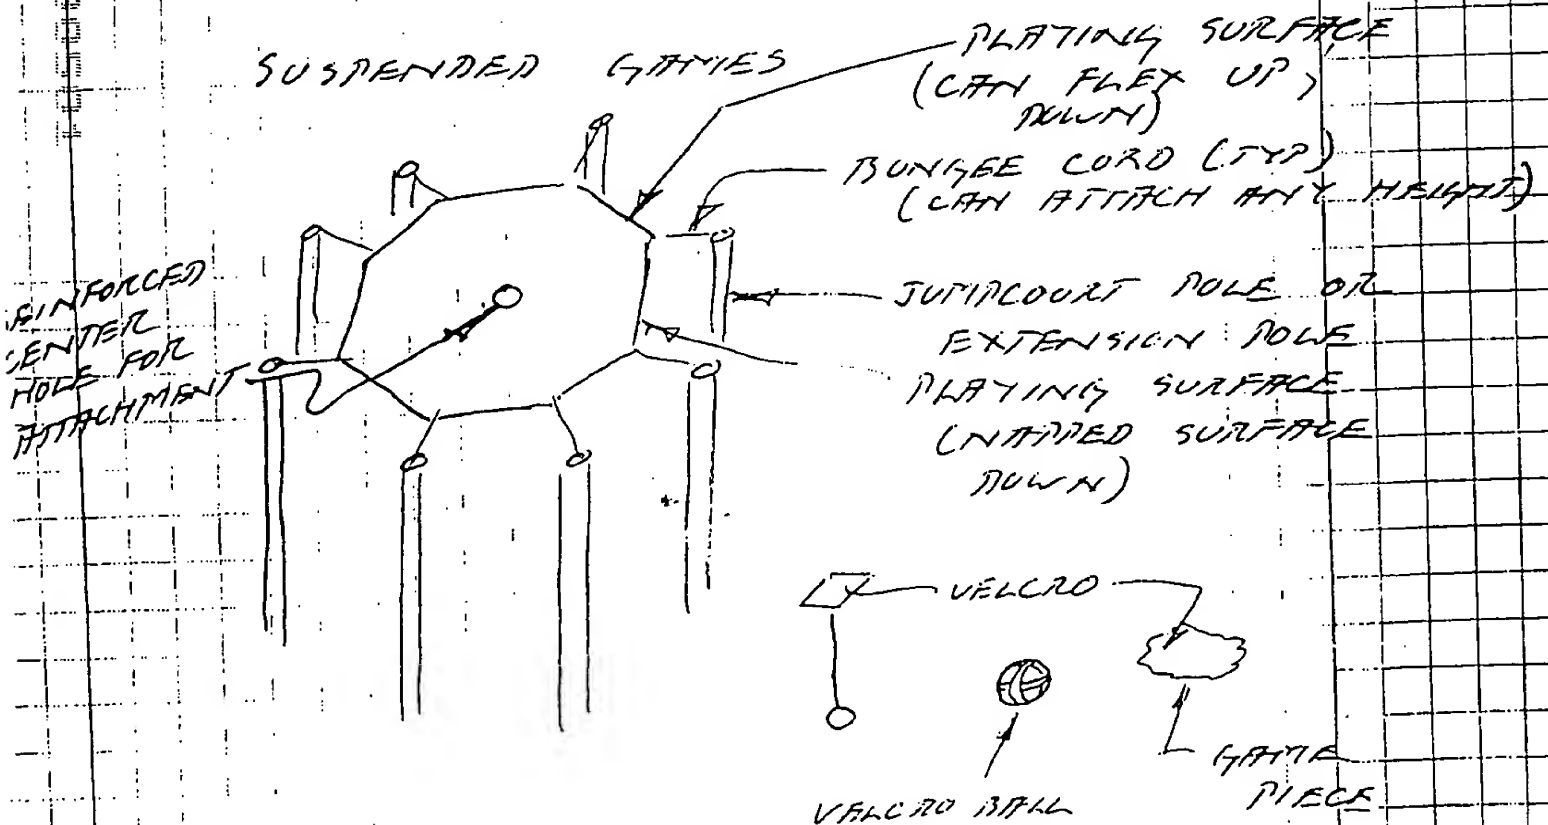 SUSPENDED GAMES
PLAYING SURFACE
(CAN FLEX UP,
DOWN)
BUNGEE CORD (TYP)
(CAN ATTACH ANY HEIGHT)
JUMPCOURT POLE OR
EXTENSION POLE
PLAYING SURFACE
(NAPPED SURFACE
DOWN)
EINFORCED
CENTER
HOLE FOR
ATTACHMENT
VELCRO
VELCRO BALL
GAME
PIECE